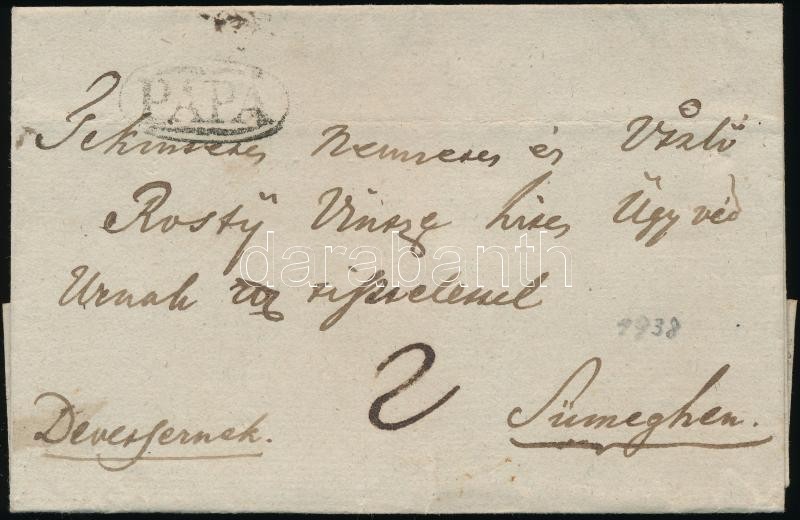 PÁPA
Tekintetes Nemzetes és Vitzlő
Rosty Vincze hites Ügyvéd
Urnak tisztelettel
1938
2
Devetsernek. Sümeghen.
darabanth